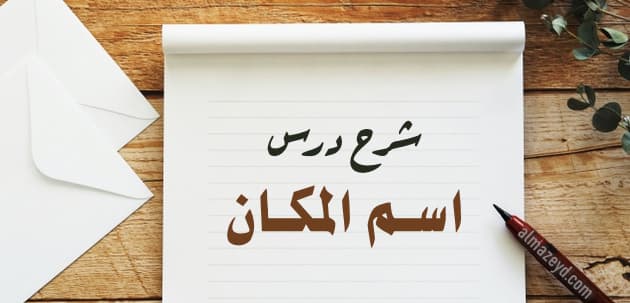 شرح درس
اسم المكان
almazeyd.com